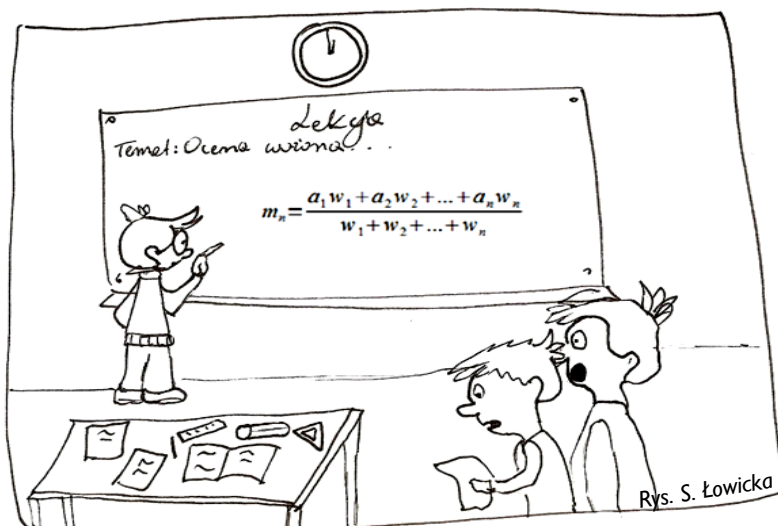 Lekcja
Temat: Ocena ważona...
mₙ = (a₁w₁+a₂w₂+...+aₙwₙ) / (w₁+w₂+...+wₙ)
Rys. S. Łowicka